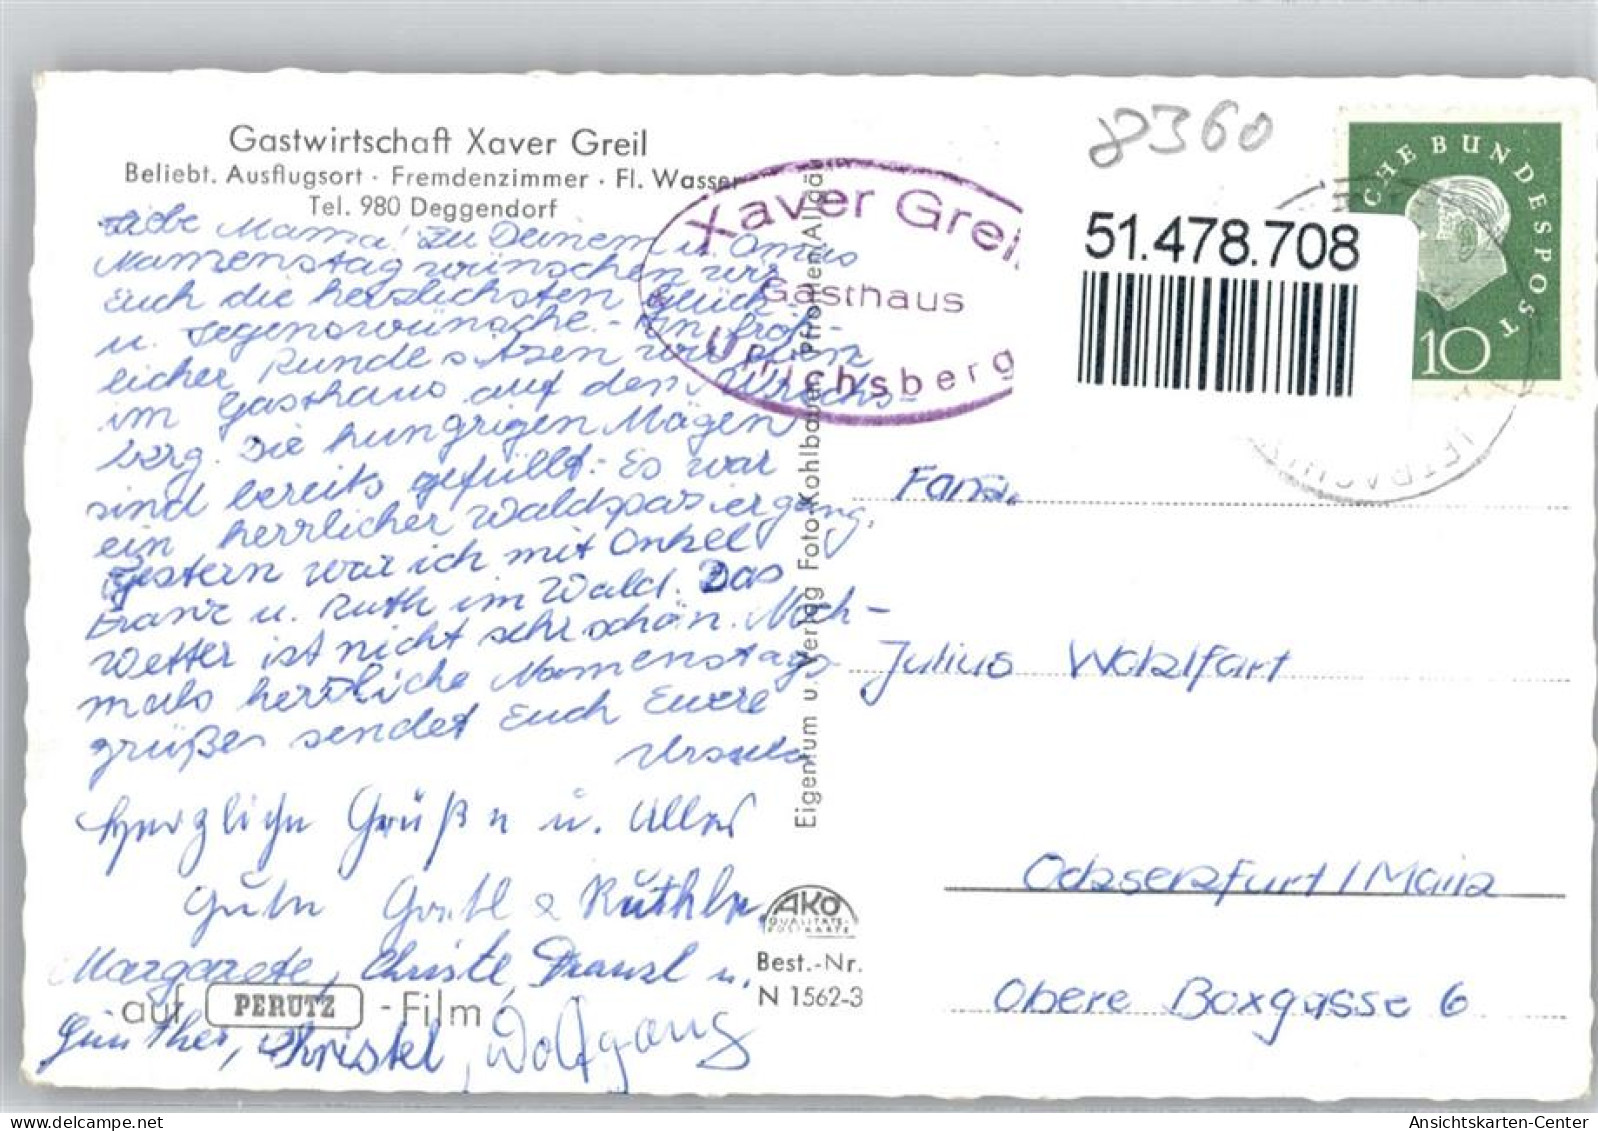 Gastwirtschaft Xaver Greil
Beliebt. Ausflugsort · Fremdenzimmer · Fl. Wasser
Tel. 980 Deggendorf
Liebe Mama! Zu Deinem u. Omas
Namenstag wünschen wir
Euch die herzlichsten Glück-
u. Segenswünsche. - In fröh-
licher Runde sitzen wir
im Gasthaus auf dem Ulrichs-
berg. Die hungrigen Mägen
sind bereits gefüllt. Es war
ein herrlicher Waldspaziergang.
Gestern war ich mit Onkel
Franz u. Ruth im Wald. Das
Wetter ist nicht sehr schön. Noch-
mals herzliche Namenstags-
grüße sendet Euch Eure
Ursula
Herzliche Grüße u. Alles
Gute Gretl &
Margarete, Christl, Franzl u.
Günther, Christel, Wolfgang
auf PERUTZ -Film
Eigentum u. Verlag Foto Kohlbauer, Pfronten/Allgäu
AKO
QUALITÄTS-
POSTKARTE
Best.-Nr.
N 1562-3
Xaver Greil
Gasthaus
Ulrichsberg
8360
51.478.708
CHE BUNDESPOST
10
Familie
Julius Walzlfart
Ochsenfurt / Main
Obere Boxgasse 6
Ansichtskarten-Center